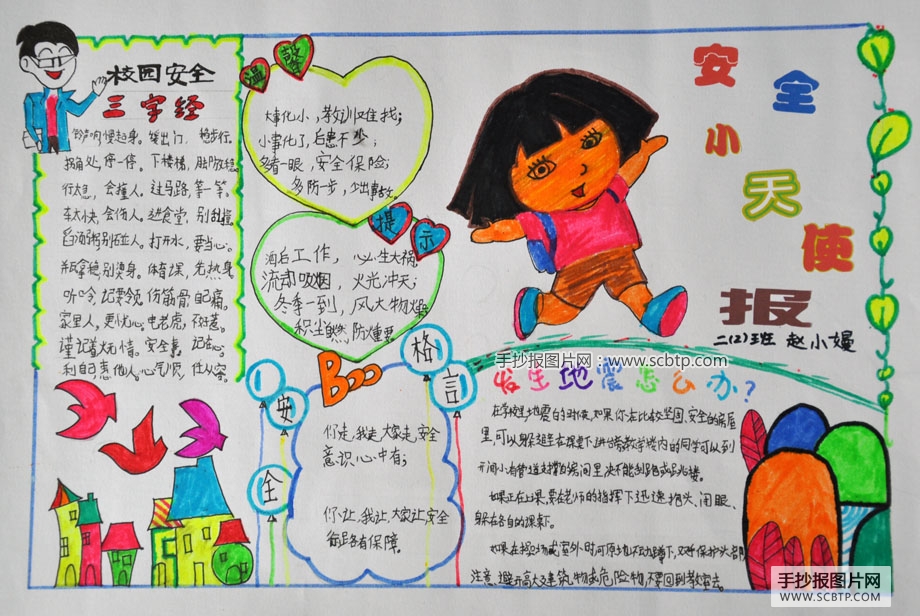 校园安全
三字经
铃声响,慢起身。
拐角处,停一停。下楼梯,
行太急,会撞人。过马路,等一等。
车太快,会伤人。进食堂,别乱撞
打开水,要当心。
体育课,先热身
伤筋骨,自己痛。
家里人,更忧心。电老虎,
安全事,记在心。
利自己,惠他人。心气顺,
温馨
大事化小,教训难找;
小事化了,后患不少;
多看一眼,安全保险;
多防一步,少出事故。
提示
酒后工作,心生大祸
流动吸烟,火光冲天;
冬季一到,风大物燥
积尘自燃防爆要
安全小天使报
二(2)班 赵小嫚
手抄报图片网:www.scbtp.com
安全
格言
Boo
你走,我走,大家走,安全
意识心中有;
你让,我让,大家让,安全
街路有保障。
发生地震怎么办?
在学校里地震的时候,如果你在比较坚固、安全的房屋
里,可以躲避在课桌下、讲台旁,教学楼内的同学可以到
开间小、有管道支撑的房间里,决不能
如果正在上课,要在老师的指挥下迅速抱头、闭眼、
躲在各自的课桌下。
如果在操场或室外时,可原地不动蹲下,双手保护头部
注意避开高大建筑物或危险物,不要回到教室去。
手抄报图片网
WWW.SCBTP.COM